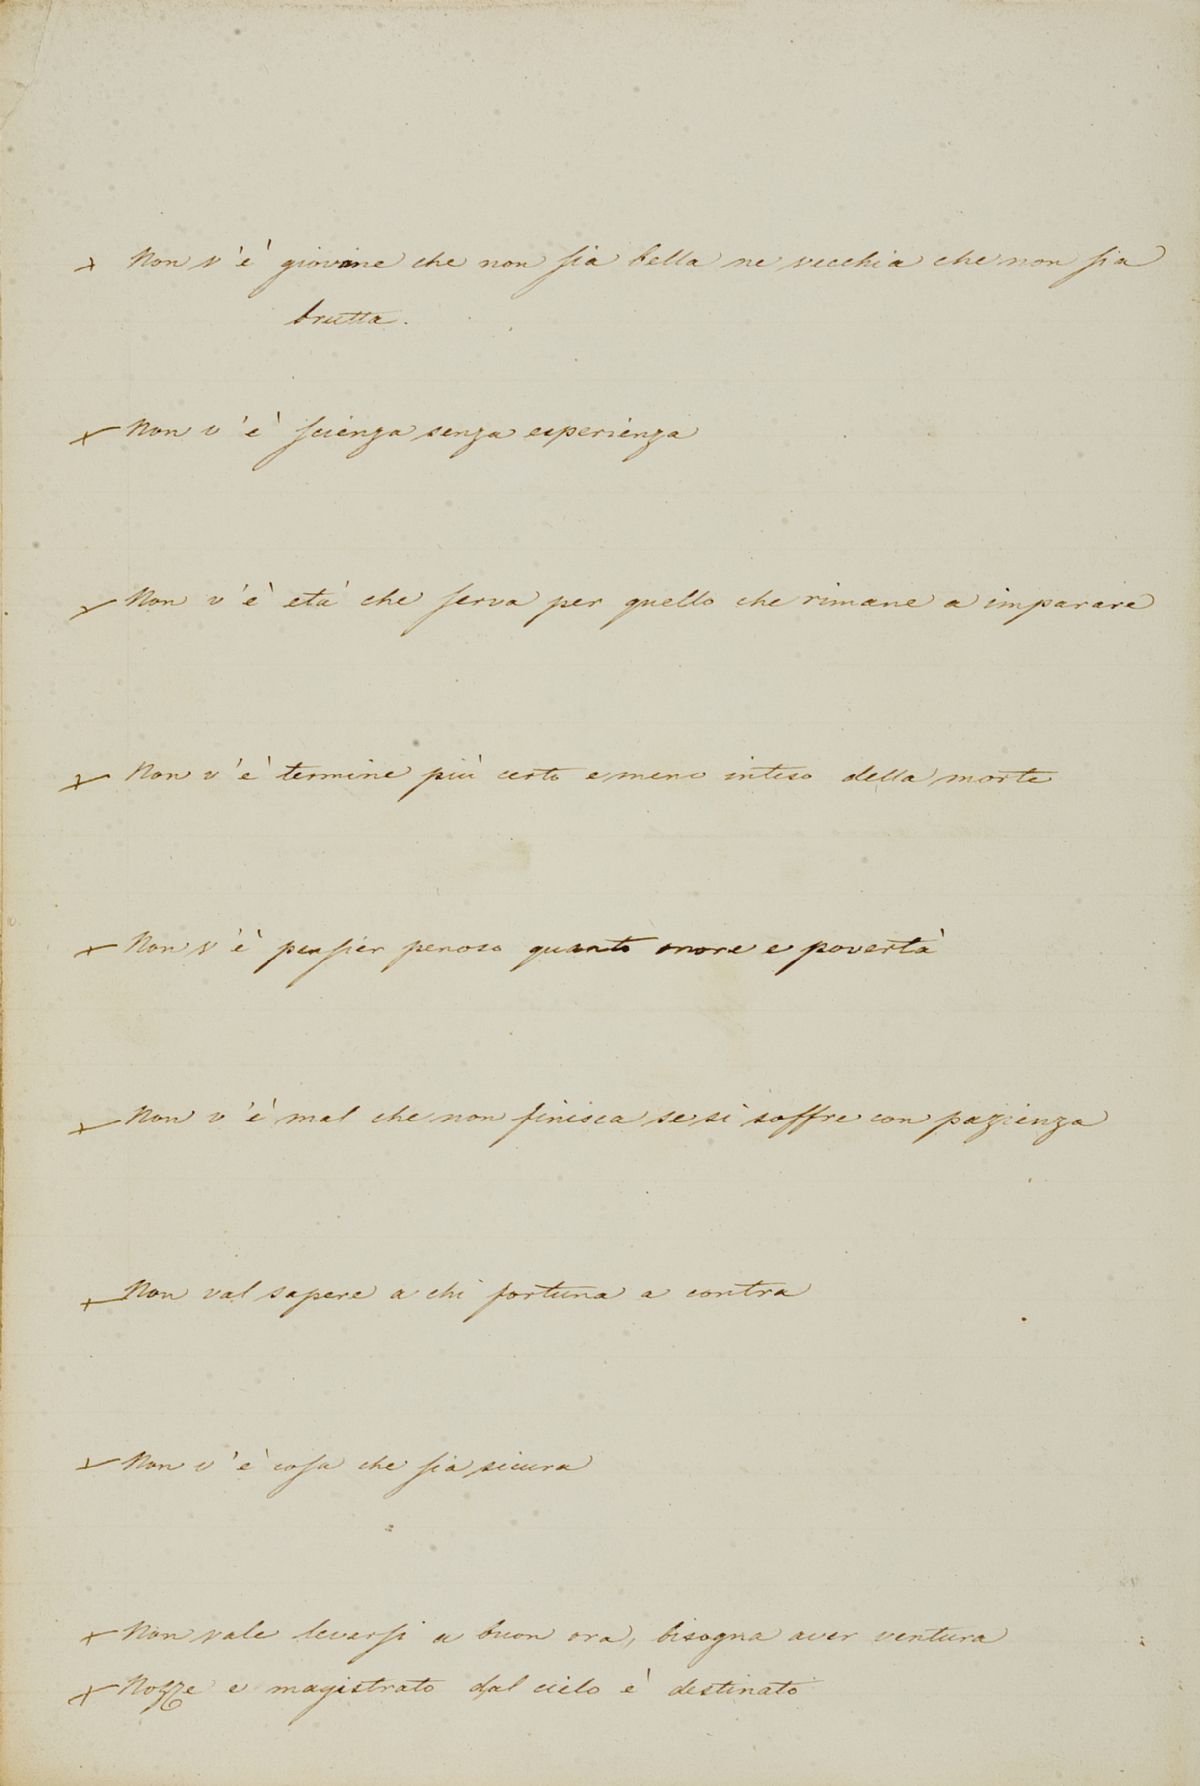 + Non v'è giovine che non sia bella ne vecchia che non sia
brutta.
+ Non v'è scienza senza esperienza
+ Non v'è età che serva per quello che rimane a imparare
+ Non v'è termine più certo e meno inteso della morte
+ Non v'è pensier penoso quanto onore e povertà
+ Non v'è mal che non finisca se si soffre con pazienza
+ Non val sapere a chi fortuna a contra
+ Non v'è cosa che sia sicura
+ Non vale levarsi a buon ora, bisogna aver ventura
+ Nozze e magistrato dal cielo è destinato